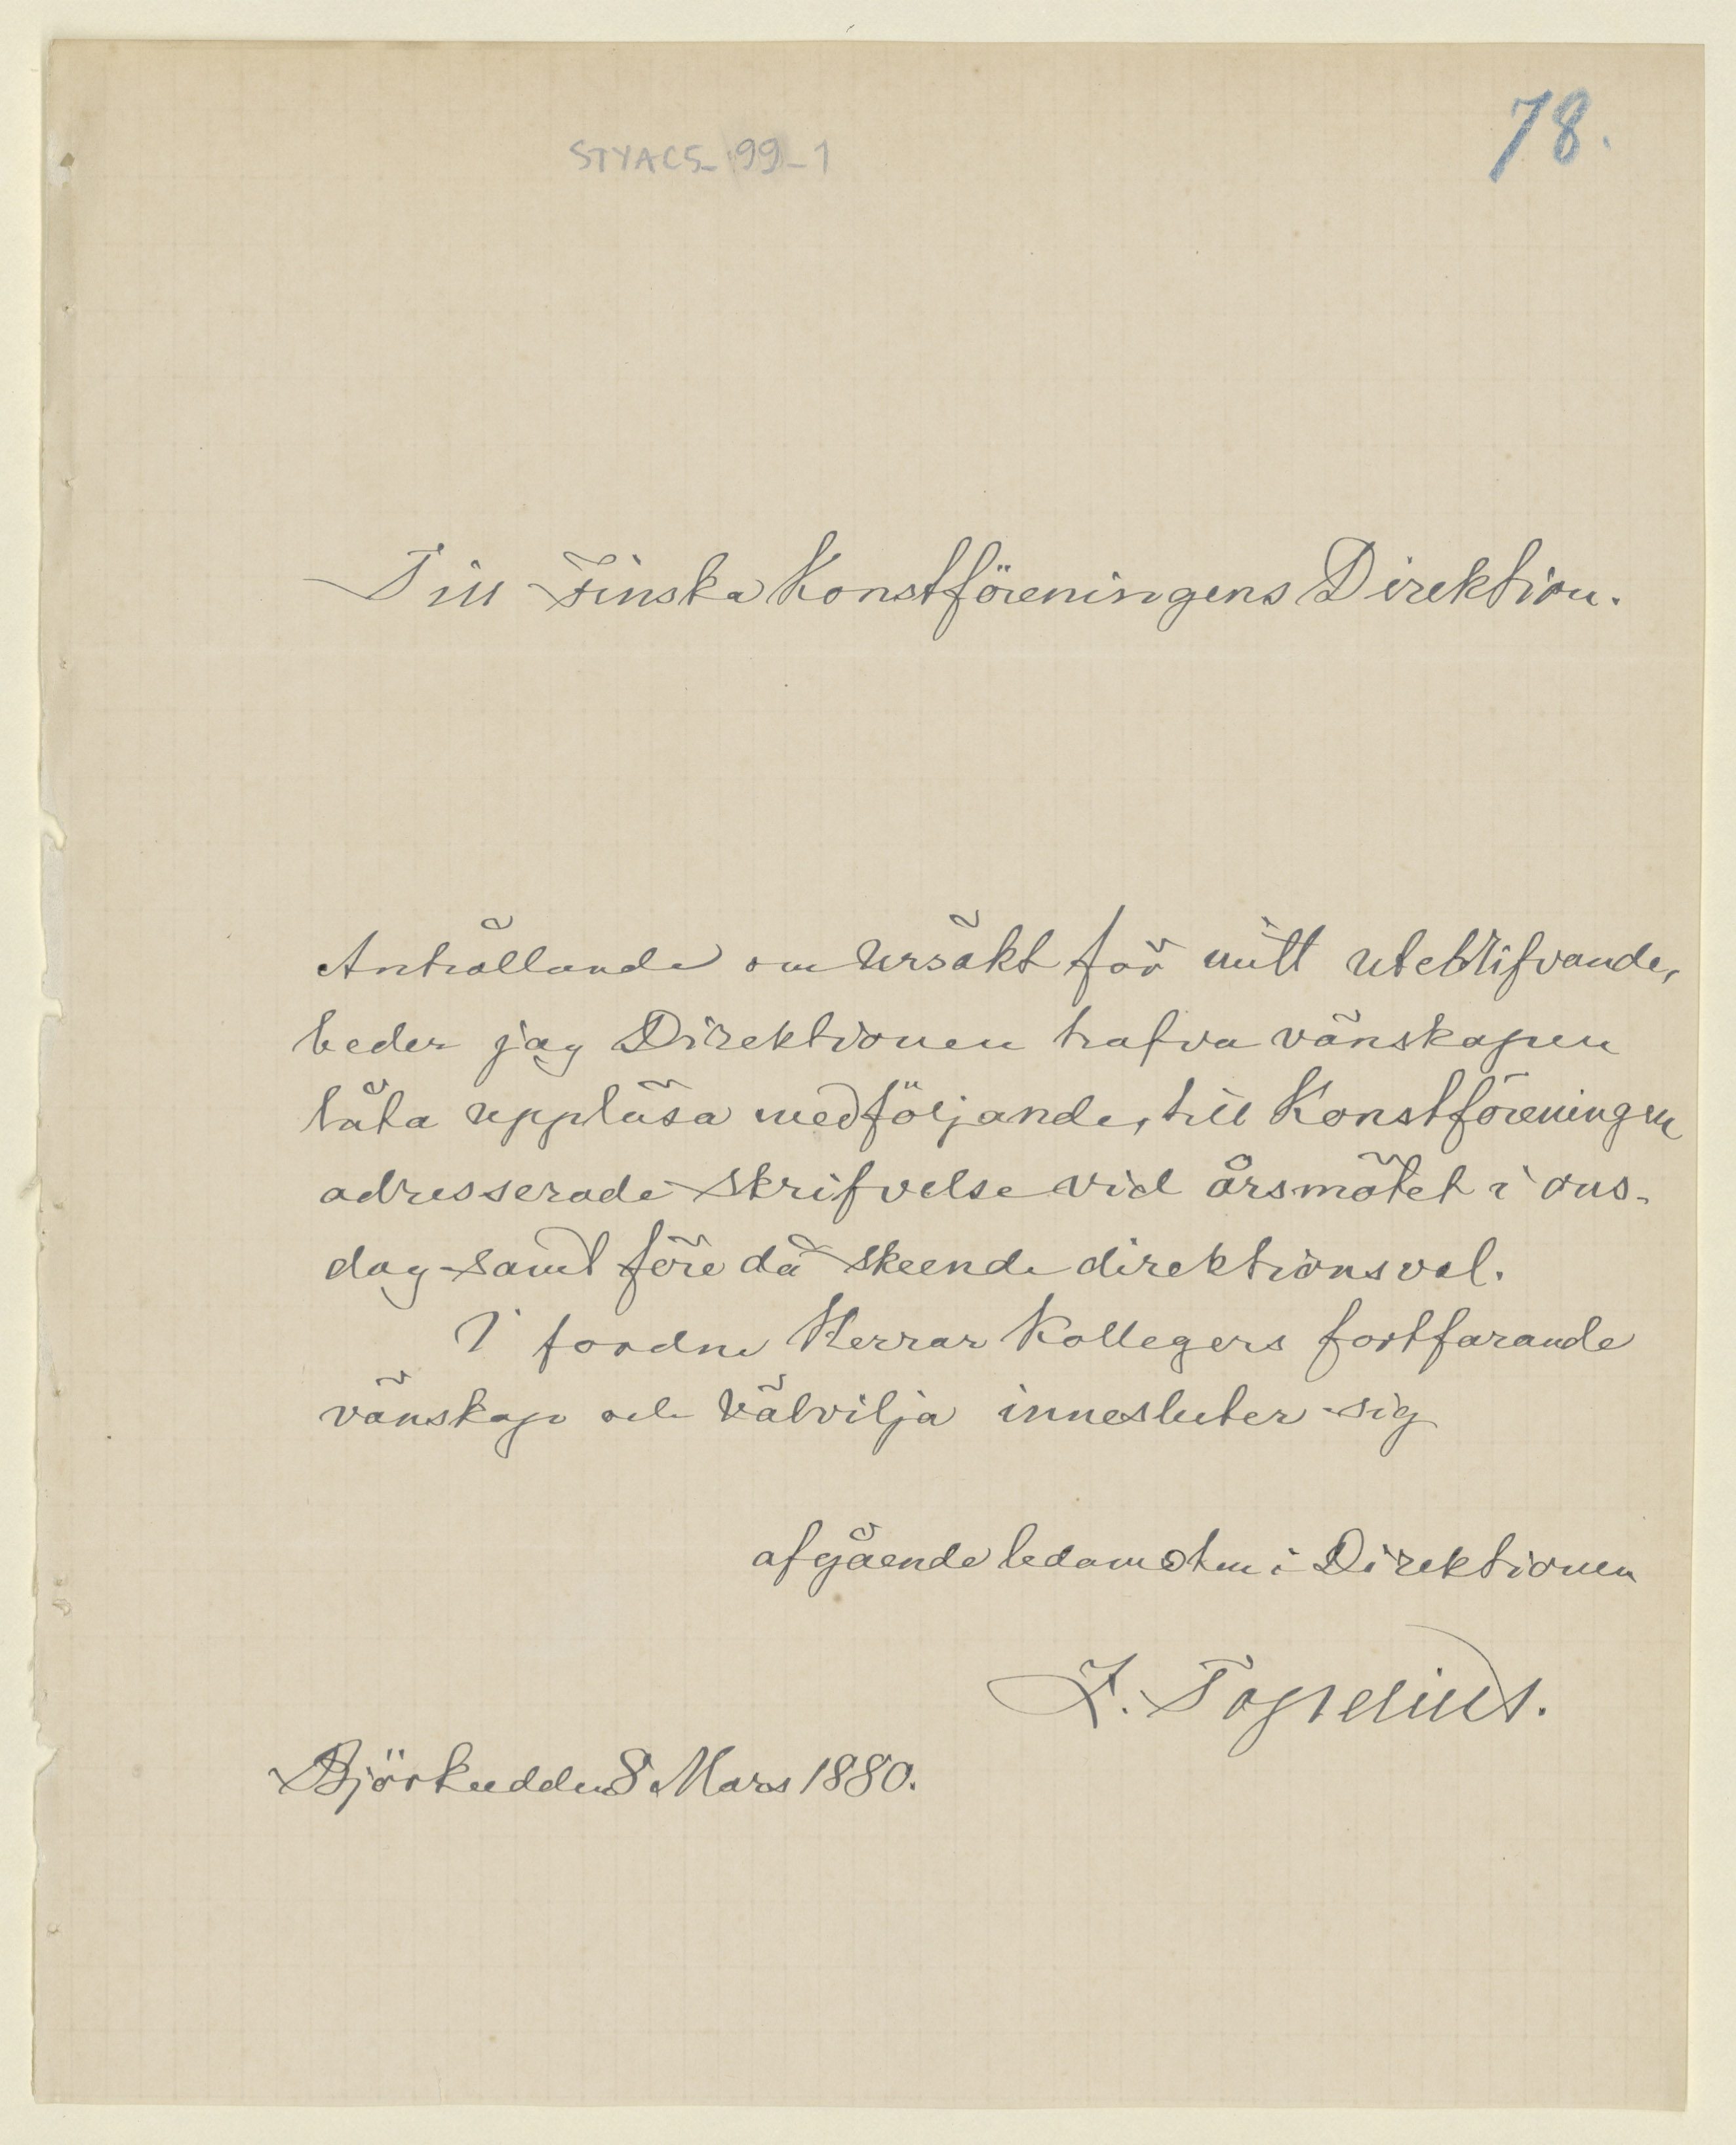 78.
STYACS_99_1
Till Finska Konstföreningens Direktion.
Anhållande om ursäkt för mitt uteblifvande,
beder jag Direktionen hafva vänskapen
låta uppläsa medföljande, till Konstföreningen
adresserade skrifvelse vid årsmötet i ons-
dag samt före då skeende direktionsval.
I fordne Herrar Kollegers fortfarande
vänskap och välvilja innesluter sig
afgående ledamoten i Direktionen
Z. Topelius.
Björkudden 8 Mars 1880.